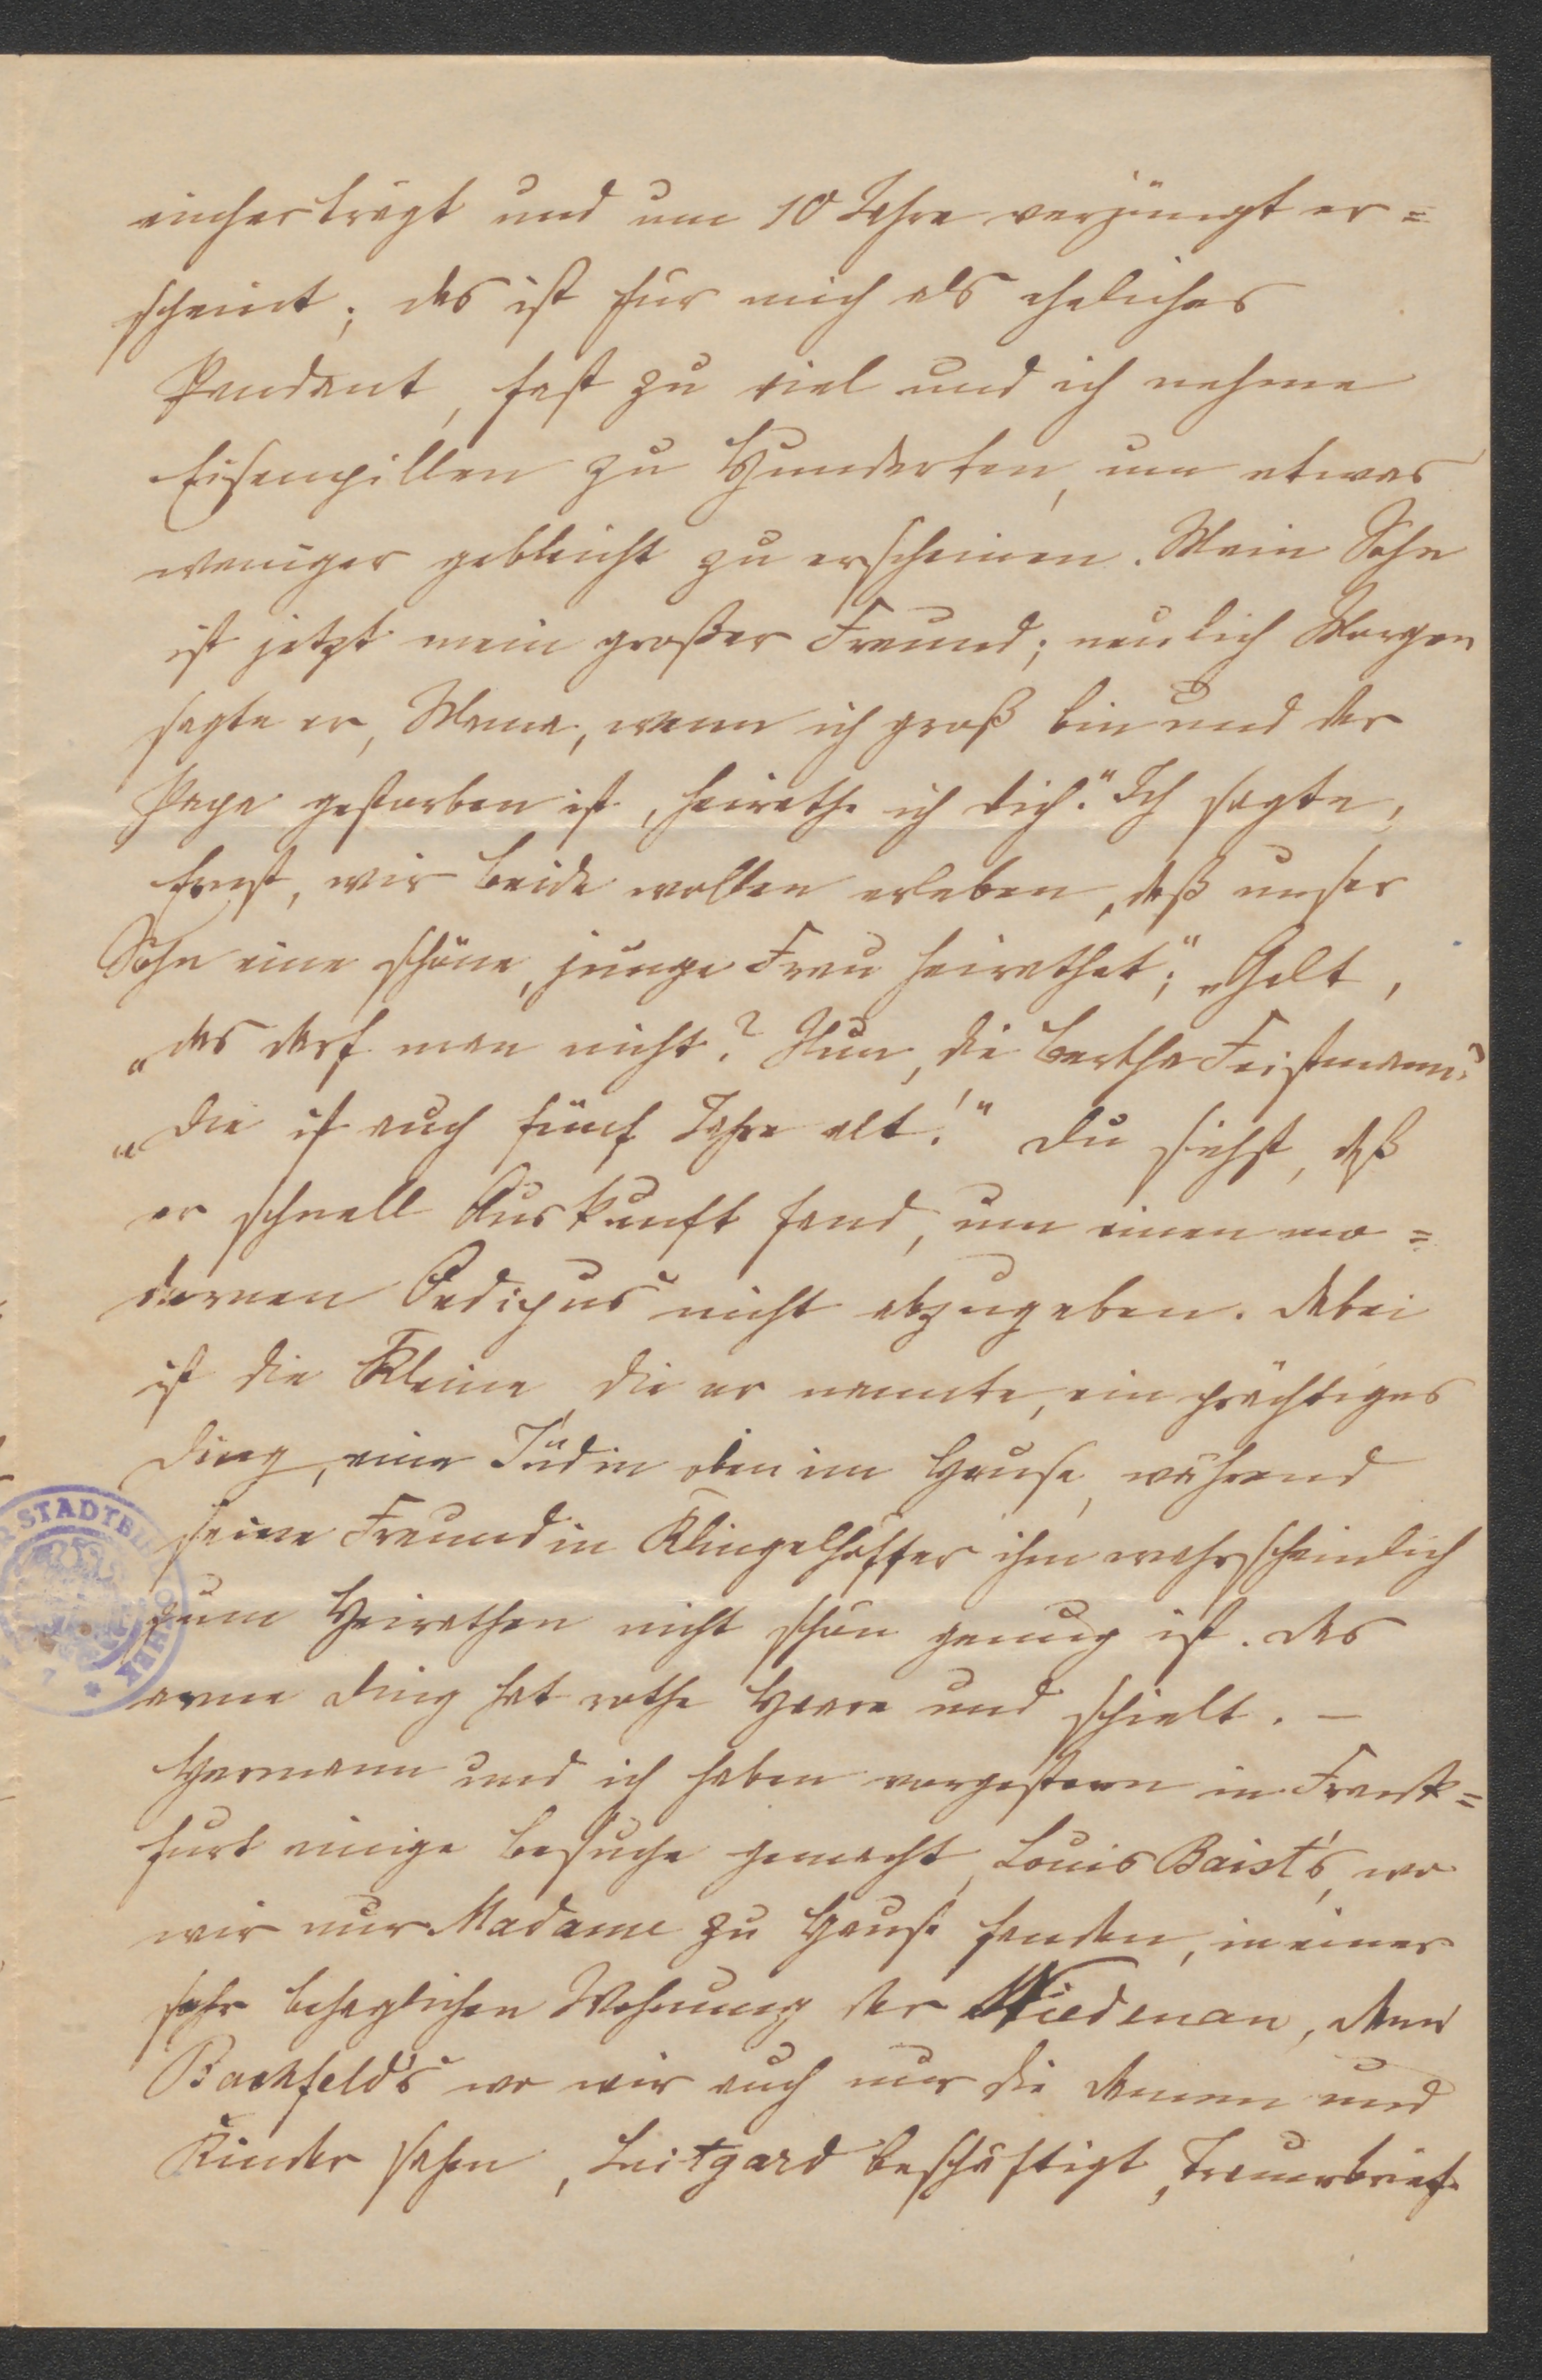 einherträgt und um 10 Jahre verjüngt er=
scheint; das ist für mich als eheliches
Pendant, fast zu viel und ich nehme
Eisenpillen zu Hunderten, um etwas
weniger gebleicht zu erscheinen. Mein Sohn
ist jetzt mein großer Freund; neulich Morgen
sagte er, Mama, wenn ich groß bin und der
Papa gestorben ist, heirathe ich dich." Ich sagte,
Ernst, wir beide wollen erleben, daß unser
Sohn eine schöne, junge Frau heirathet;" „Gelt,
„das darf man nicht? Nun, die Bertha Feistmann?
„die ist auch fünf Jahre alt!" Du siehst, daß
er schnell Auskunft fand, um einen mo=
dernen Oedipus nicht abzugeben. Dabei
ist die Kleine, die er nannte, ein prächtiges
Ding, eine Jüdin oben im Hause, während
seine Freundin Klingelhöffer ihm wahrscheinlich
zum Heirathen nicht schön genug ist. Das
arme Ding hat rothe Haare und schielt. –
Hermann und ich haben vorgestern in Frank=
furt einige Besuche gemacht, Louis Baist's, wo
wir nur Madame zu Hause fanden, in einer
sehr behaglichen Wohnung der Wiedenau, dann
Backfeld's wo wir auch nur die Damen und
Kinder sahen, Luitgard beschäftigt, Trauerbrief
STADTBIBLIOTHEK